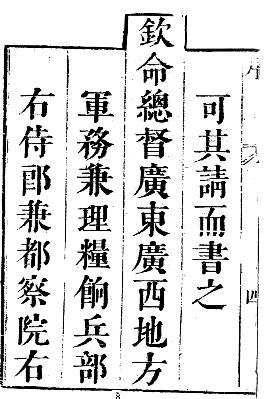 可其請而書之
欽命總督廣東廣西地方
軍務兼理糧餉兵部
右侍郎兼都察院右
四
8